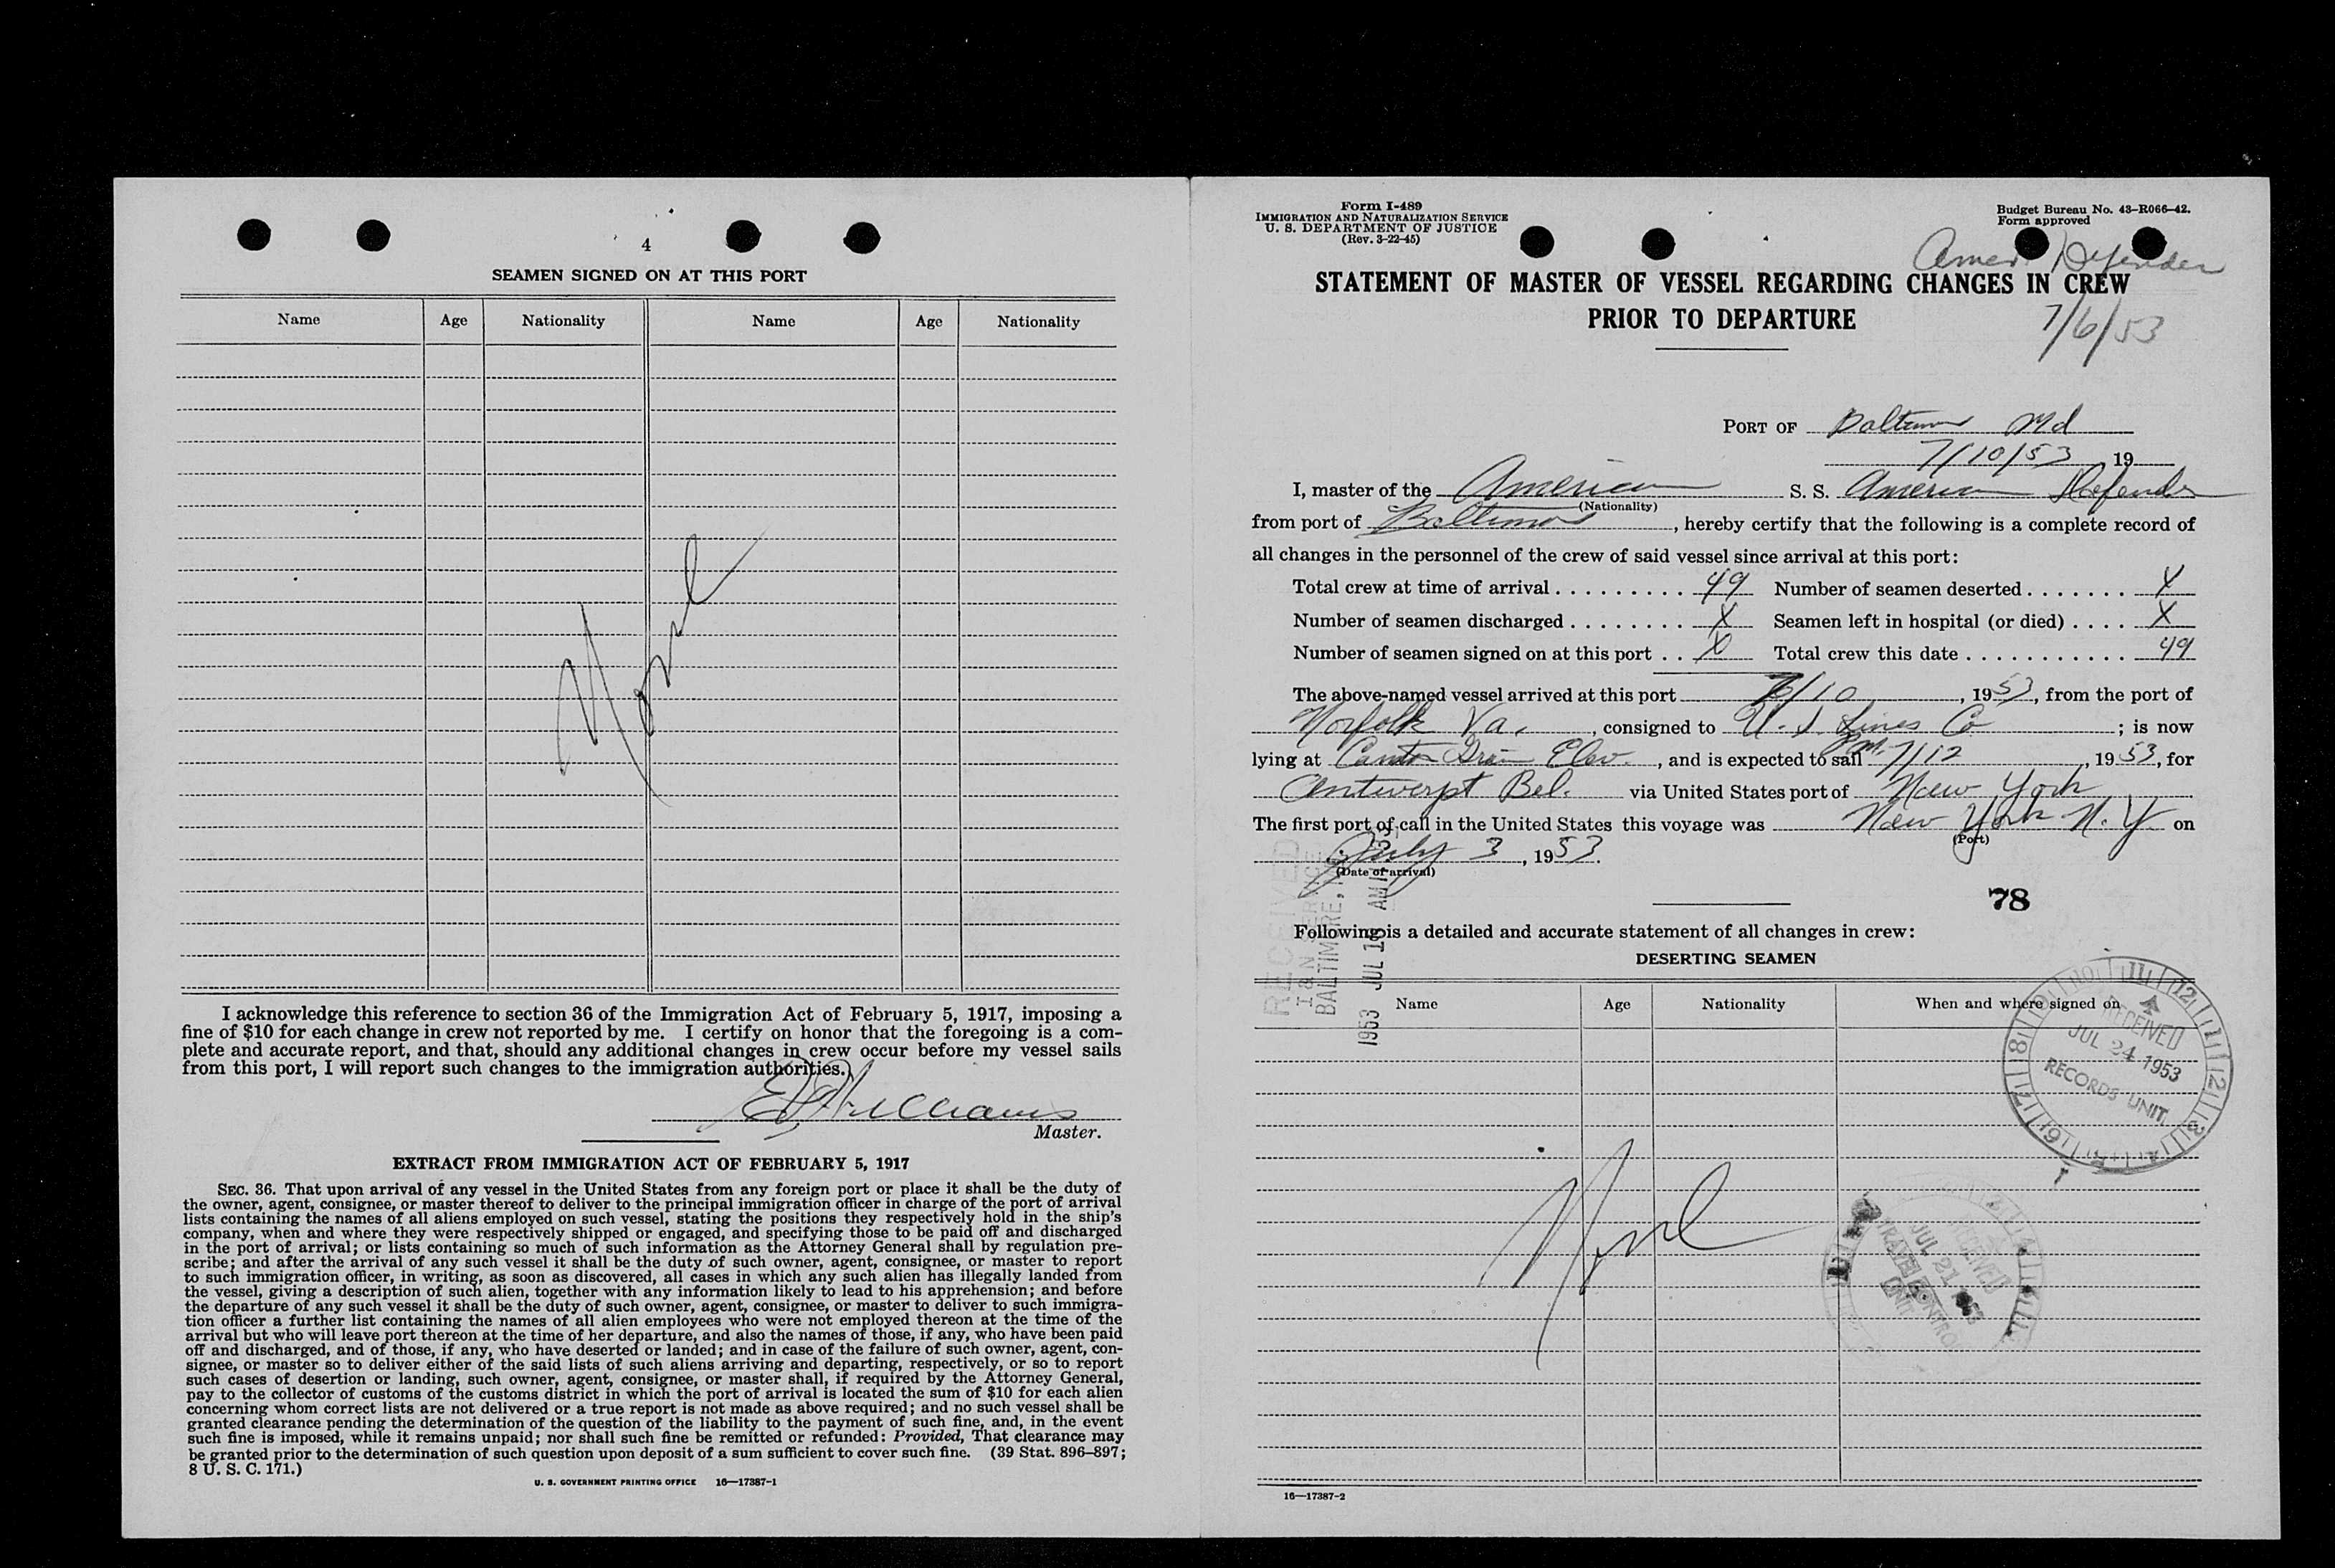 4
SEAMEN SIGNED ON AT THIS PORT
Name Age Nationality Name Age Nationality
None
I acknowledge this reference to section 36 of the Immigration Act of February 5, 1917, imposing a
fine of $10 for each change in crew not reported by me. I certify on honor that the foregoing is a com-
plete and accurate report, and that, should any additional changes in crew occur before my vessel sails
from this port, I will report such changes to the immigration authorities.
Williams
Master.
EXTRACT FROM IMMIGRATION ACT OF FEBRUARY 5, 1917
SEC. 36. That upon arrival of any vessel in the United States from any foreign port or place it shall be the duty of
the owner, agent, consignee, or master thereof to deliver to the principal immigration officer in charge of the port of arrival
lists containing the names of all aliens employed on such vessel, stating the positions they respectively hold in the ship's
company, when and where they were respectively shipped or engaged, and specifying those to be paid off and discharged
in the port of arrival; or lists containing so much of such information as the Attorney General shall by regulation pre-
scribe; and after the arrival of any such vessel it shall be the duty of such owner, agent, consignee, or master to report
to such immigration officer, in writing, as soon as discovered, all cases in which any such alien has illegally landed from
the vessel, giving a description of such alien, together with any information likely to lead to his apprehension; and before
the departure of any such vessel it shall be the duty of such owner, agent, consignee, or master to deliver to such immigra-
tion officer a further list containing the names of all alien employees who were not employed thereon at the time of the
arrival but who will leave port thereon at the time of her departure, and also the names of those, if any, who have been paid
off and discharged, and of those, if any, who have deserted or landed; and in case of the failure of such owner, agent, con-
signee, or master so to deliver either of the said lists of such aliens arriving and departing, respectively, or so to report
such cases of desertion or landing, such owner, agent, consignee, or master shall, if required by the Attorney General,
pay to the collector of customs of the customs district in which the port of arrival is located the sum of $10 for each alien
concerning whom correct lists are not delivered or a true report is not made as above required; and no such vessel shall be
granted clearance pending the determination of the question of the liability to the payment of such fine, and, in the event
such fine is imposed, while it remains unpaid; nor shall such fine be remitted or refunded: Provided, That clearance may
be granted prior to the determination of such question upon deposit of a sum sufficient to cover such fine. (39 Stat. 896–897;
8 U. S. C. 171.)
U. S. GOVERNMENT PRINTING OFFICE 16—17387-1
Form I-489
IMMIGRATION AND NATURALIZATION SERVICE
U. S. DEPARTMENT OF JUSTICE
(Rev. 3-22-45)
Budget Bureau No. 43-R066-42.
Form approved
Amer Defender
STATEMENT OF MASTER OF VESSEL REGARDING CHANGES IN CREW
PRIOR TO DEPARTURE
7/6/53
PORT OF Baltimore Md
7/10/53 19
I, master of the American S. S. American Defender
(Nationality)
from port of Baltimore, hereby certify that the following is a complete record of
all changes in the personnel of the crew of said vessel since arrival at this port:
Total crew at time of arrival . . . . . . . . . 49 Number of seamen deserted . . . . . . . X
Number of seamen discharged . . . . . . . . X Seamen left in hospital (or died) . . . . X
Number of seamen signed on at this port . . X Total crew this date . . . . . . . . . . . 49
The above-named vessel arrived at this port 7/10, 1953, from the port of
Norfolk Va., consigned to U. S. Lines Co; is now
lying at Canton Grain Elev., and is expected to sail PM. 7/12, 1953, for
Antwerpt Bel. via United States port of New York
The first port of call in the United States this voyage was New York N. Y. on
(Port)
July 3, 1953.
(Date of arrival)
RECEIVED
I & N SERVICE
BALTIMORE,
1953 JUL 13 AM
78
Following is a detailed and accurate statement of all changes in crew:
DESERTING SEAMEN
Name Age Nationality When and where signed on
RECEIVED
JUL 24 1953
RECORDS UNIT
None
RECEIVED
JUL 21 1953
TRAVEL CONTROL
UNIT
16—17387-2